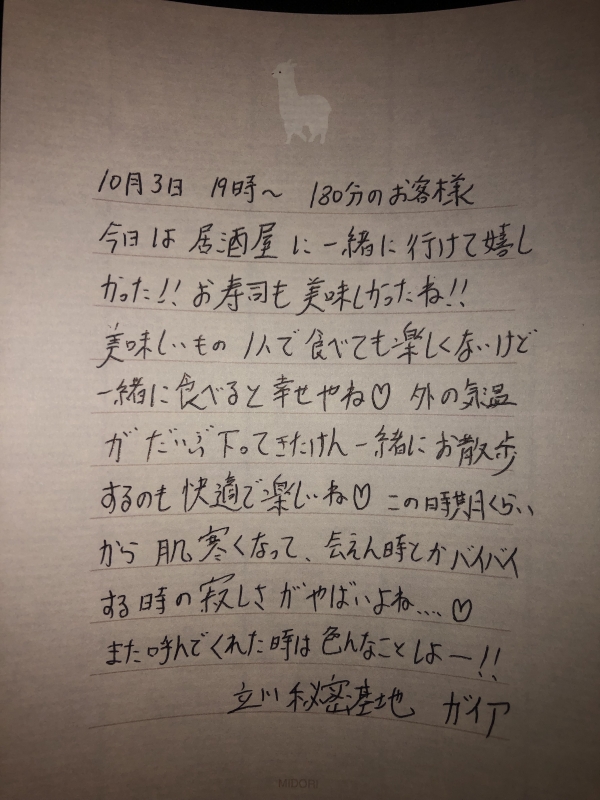 10月3日 19時～ 180分のお客様
今日は居酒屋に一緒に行けて嬉し
かった!! お寿司も美味しかったね!!
美味しいもの 1人で食べても楽しくないけど
一緒に食べると幸せやね♡ 外の気温
がだいぶ下ってきたけん一緒にお散歩
するのも快適で楽しいね♡ この時期くらい
から肌寒くなって、会えん時とかバイバイ
する時の寂しさがやばいよね....♡
また呼んでくれた時は色んなことしよー!!
立川秘密基地 ガイア
MIDORI